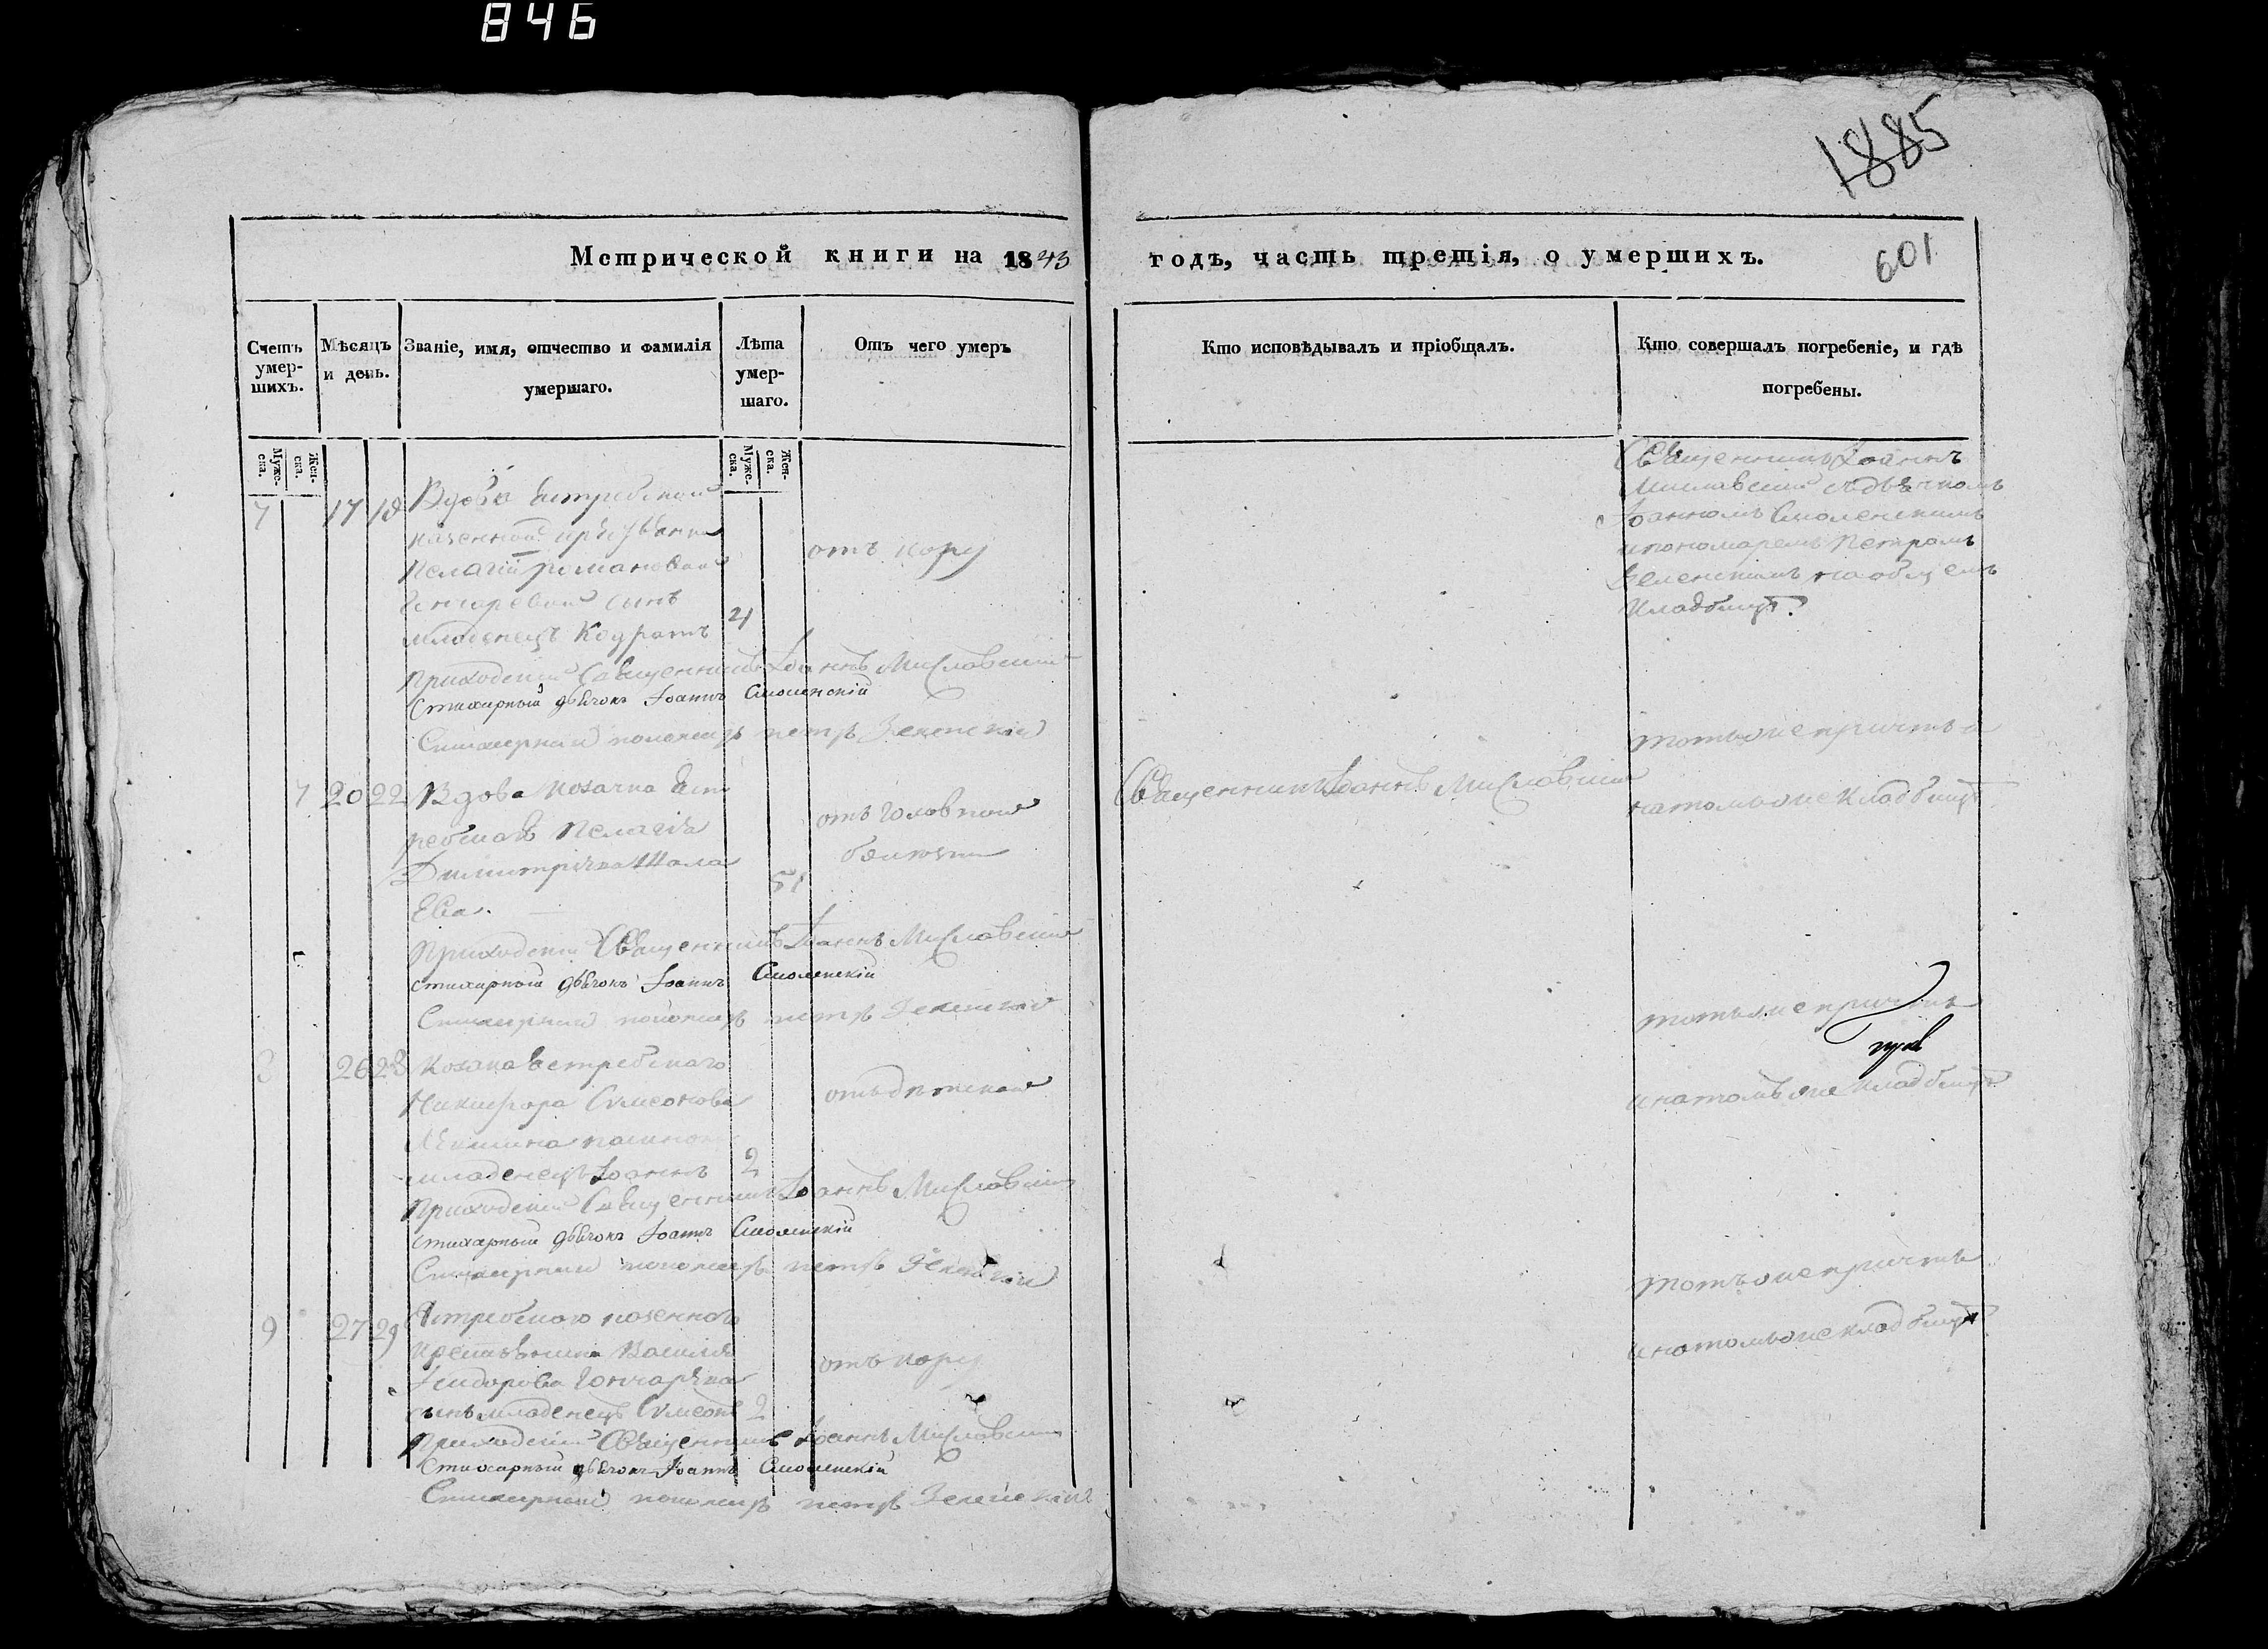 846
1885
Метрической книги на 1843 годъ, часть третія, о умершихъ.
601
Счетъ умер-шихъ.
Мѣсяцъ и день.
Званіе, имя, отчество и фамилія умершаго.
Лѣта умер-шаго.
Отъ чего умеръ
Кто исповѣдывалъ и пріобщалъ.
Кто совершалъ погребеніе, и гдѣ погребены.
Муже-ска.
Жен-ска.
Муже-ска.
Жен-ска.
7 17 18 Вдова
казенной
Пелагіи Романовой
сынъ
младенецъ Кодратъ
отъ кору
Священникъ Іоаннъ
Мисловскій съ дьячкомъ
Іоанномъ Смоленскимъ
и пономаремъ Петромъ
Зеленскимъ на общемъ
кладбищѣ.
Приходскій Священникъ Іоаннъ Мисловскій
Стихарный дьячокъ Іоаннъ Смоленскій
Стихарный пономарь Петръ Зеленскій
7 20 22 Вдова козачка Яст
ребска Пелагія
Димитріева Шала
ева.
51
отъ головной
болезни
Священникъ Іоаннъ Мисловскій
тотъ же причтъ
на томъ же кладбищѣ.
Приходскій Священникъ Іоаннъ Мисловскій
Стихарный дьячокъ Іоаннъ Смоленскій
Стихарный пономарь Петръ Зеленскій
8 26 28 Козака Ястребскаго
Никифора Симеонова
младенецъ Іоаннъ 2
отъ дѣтской
тотъ же причтъ
и на томъ же кладбищѣ
Приходскій Священникъ Іоаннъ Мисловскій
Стихарный дьячокъ Іоаннъ Смоленскій
Стихарный пономарь Петръ Зеленскій
9 27 29 Ястребскаго казеннаго
крестьянина Василія
Сидорова Гончарука
сынъ младенецъ Симеонъ 2
отъ кору
тотъ же причтъ
и на томъ же кладбищѣ
Приходскій Священникъ Іоаннъ Мисловскій
Стихарный дьячокъ Іоаннъ Смоленскій
Стихарный пономарь Петръ Зеленскій